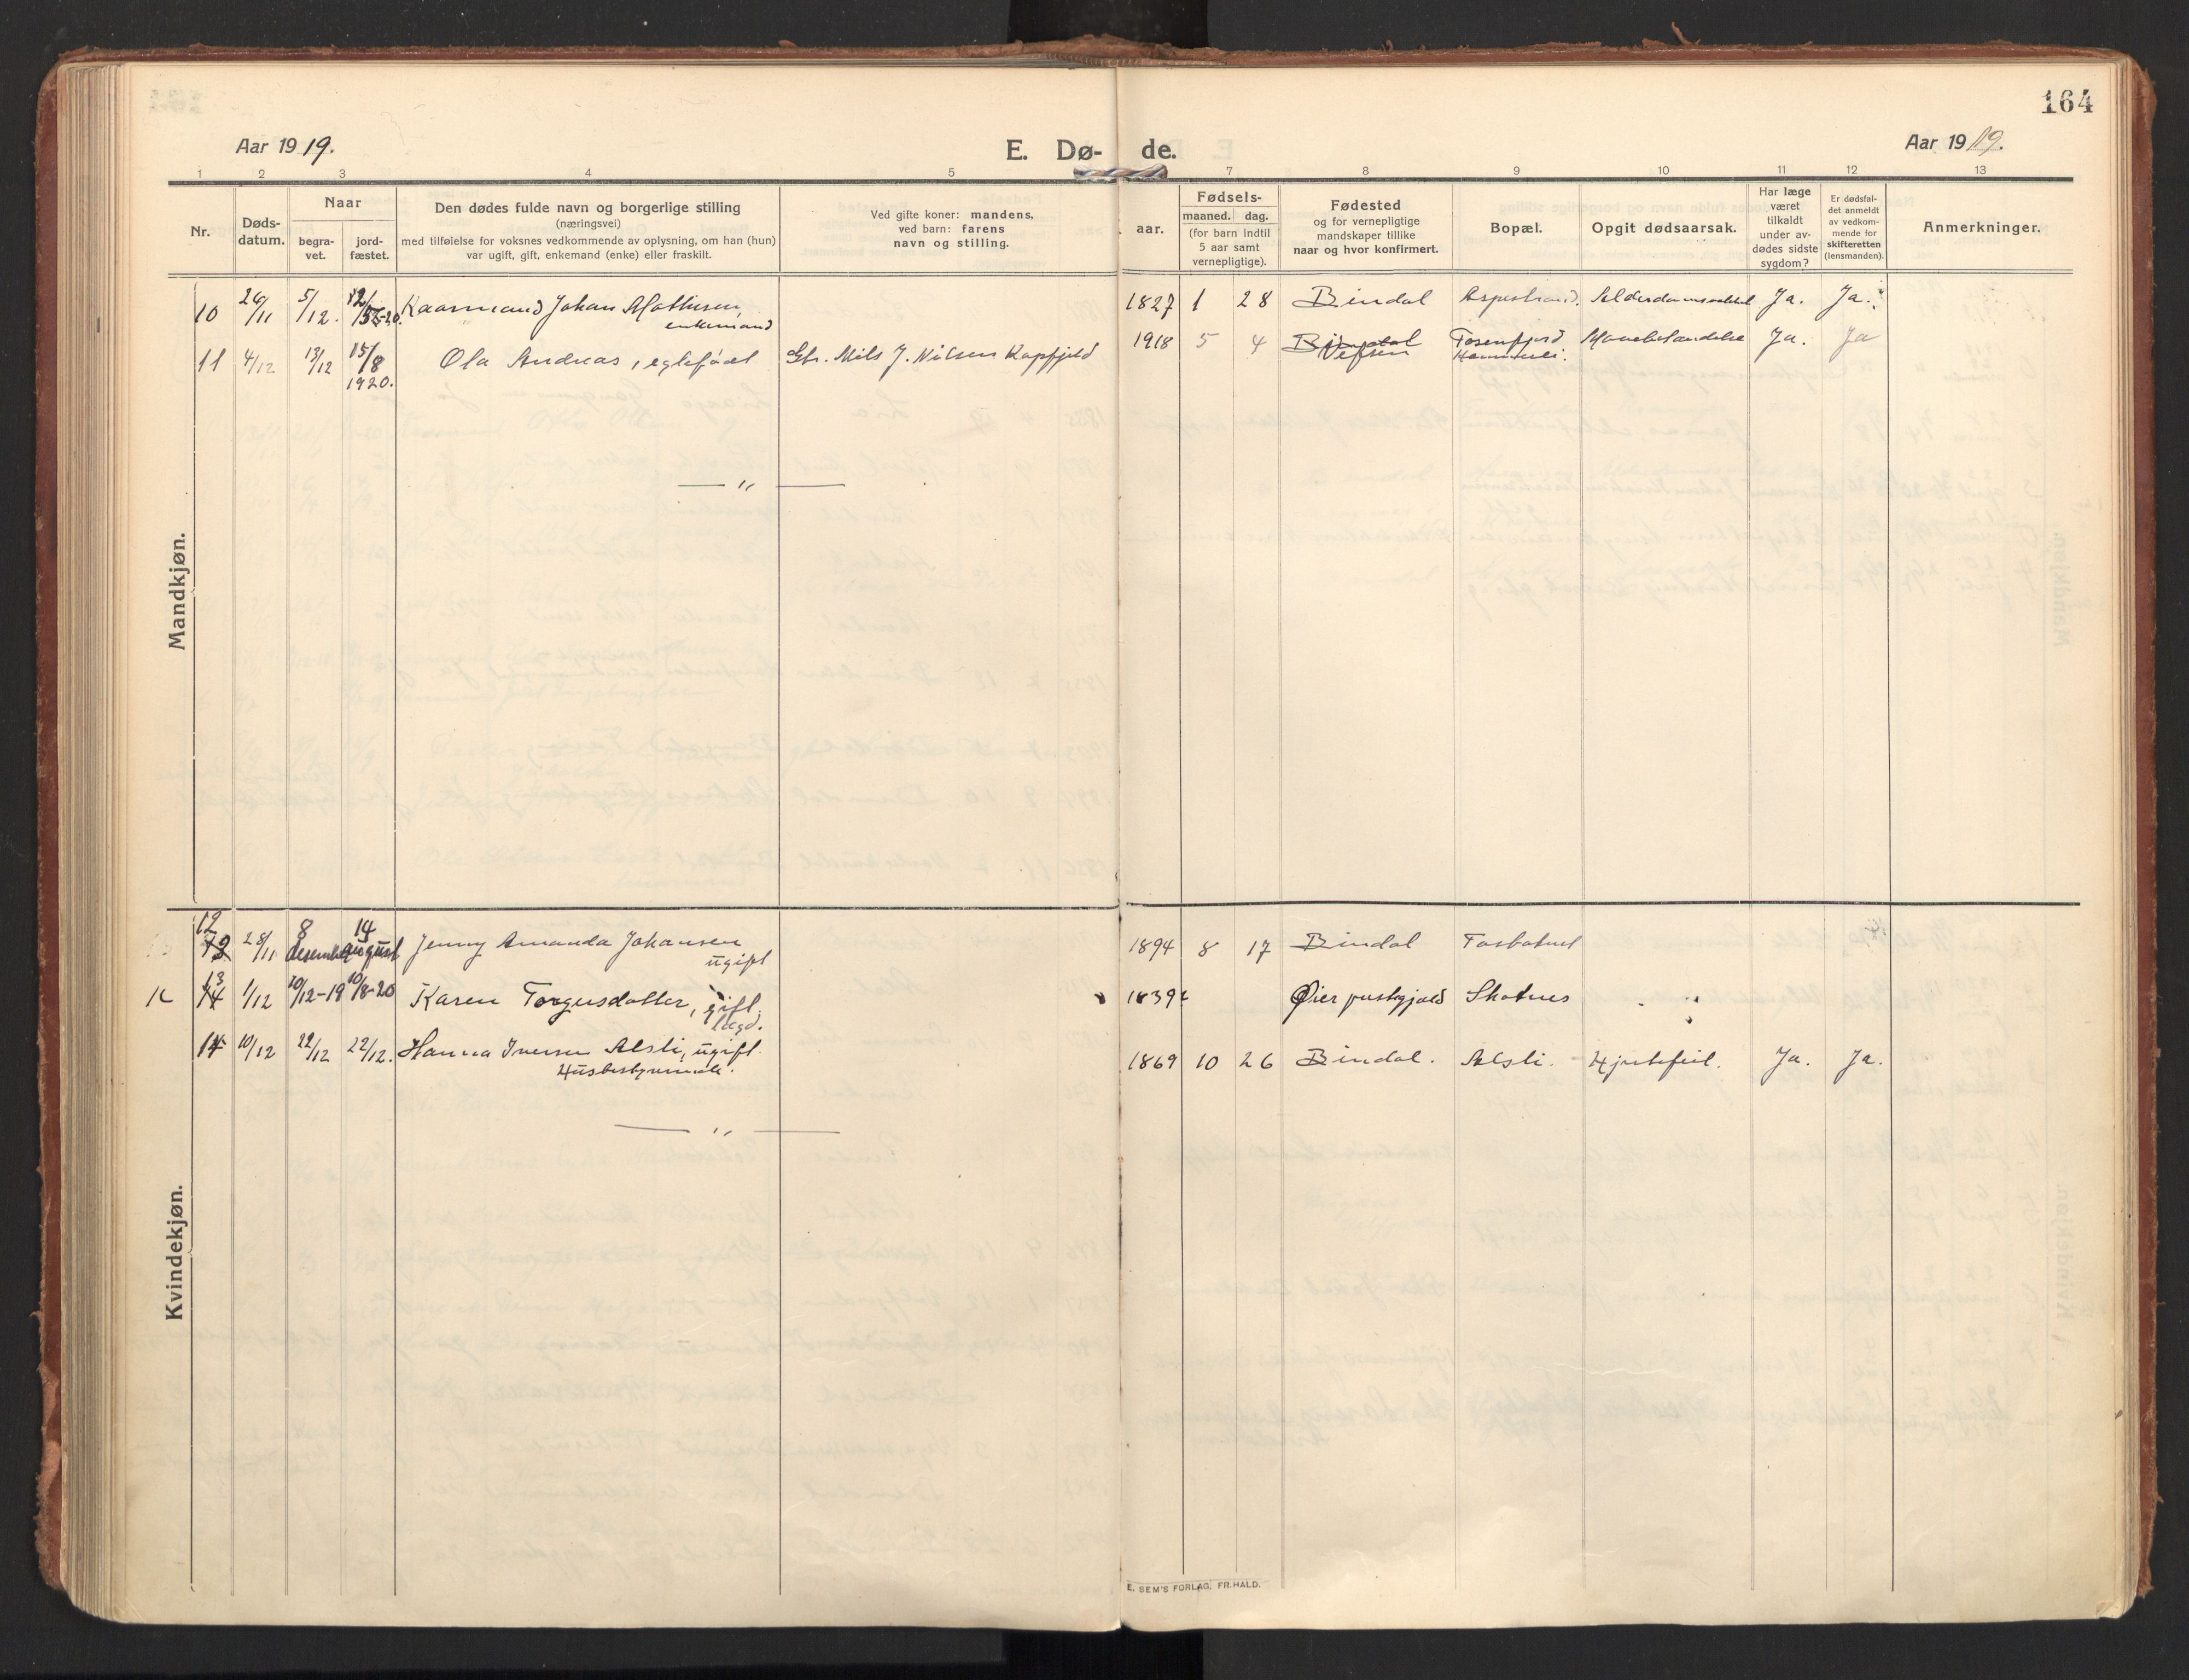 164
Aar 1919.
E. Dø- de.
Aar 1919.
1 2 3 4 5 7 8 9 10 11 12 13
Nr.
Døds-
datum.
Naar
begra-
vet.
jord-
fæstet.
Den dødes fulde navn og borgerlige stilling
(næringsvei)
med tilføielse for voksnes vedkommende av oplysning, om han (hun)
var ugift, gift, enkemand (enke) eller fraskilt.
Ved gifte koner: mandens,
ved barn: farens
navn og stilling.
Fødsels-
aar.
maaned. dag.
(for barn indtil
5 aar samt
vernepligtige).
Fødested
og for vernepligtige
mandskaper tillike
naar og hvor konfirmert.
Bopæl.
Opgit dødsaarsak.
Har læge
været
tilkaldt
under av-
dødes sidste
sygdom?
Er dødsfal-
det anmeldt
av vedkom-
mende for
skifteretten
(lensmanden).
Anmerkninger.
Mandkjøn.
10 26/11 5/12. Kaarmand Johan Mathisen, 1827 1 28 Bindal Aspestrand. Ja. Ja.
enkemand
11 4/12 13/12 15/8 Ola Andreas, egtefødt Gbr. Nils J. Nilsen Kapfjeld 1918 5 4 Bindal Tosenfjord Ja. Ja
1920. Vefsen
— " —
Kvindekjøn.
12
13 28/11 8 desember 14 august Jenny Amanda Johansen 1894 8 17 Bindal Tosbotnet
ugift
13
14 1/12 10/12-19 10/8-20 Karen Torgersdatter, gift. 1839 Øier prestegjeld Skotnes
lægd.
14 10/12 22/12 22/12. Hanna Iversen Alsli, ugift. 1869 10 26 Bindal. Alsli. Hjertefeil. Ja. Ja.
Husbestyrerinde.
— " —
E. SEM'S FORLAG, FR.HALD.